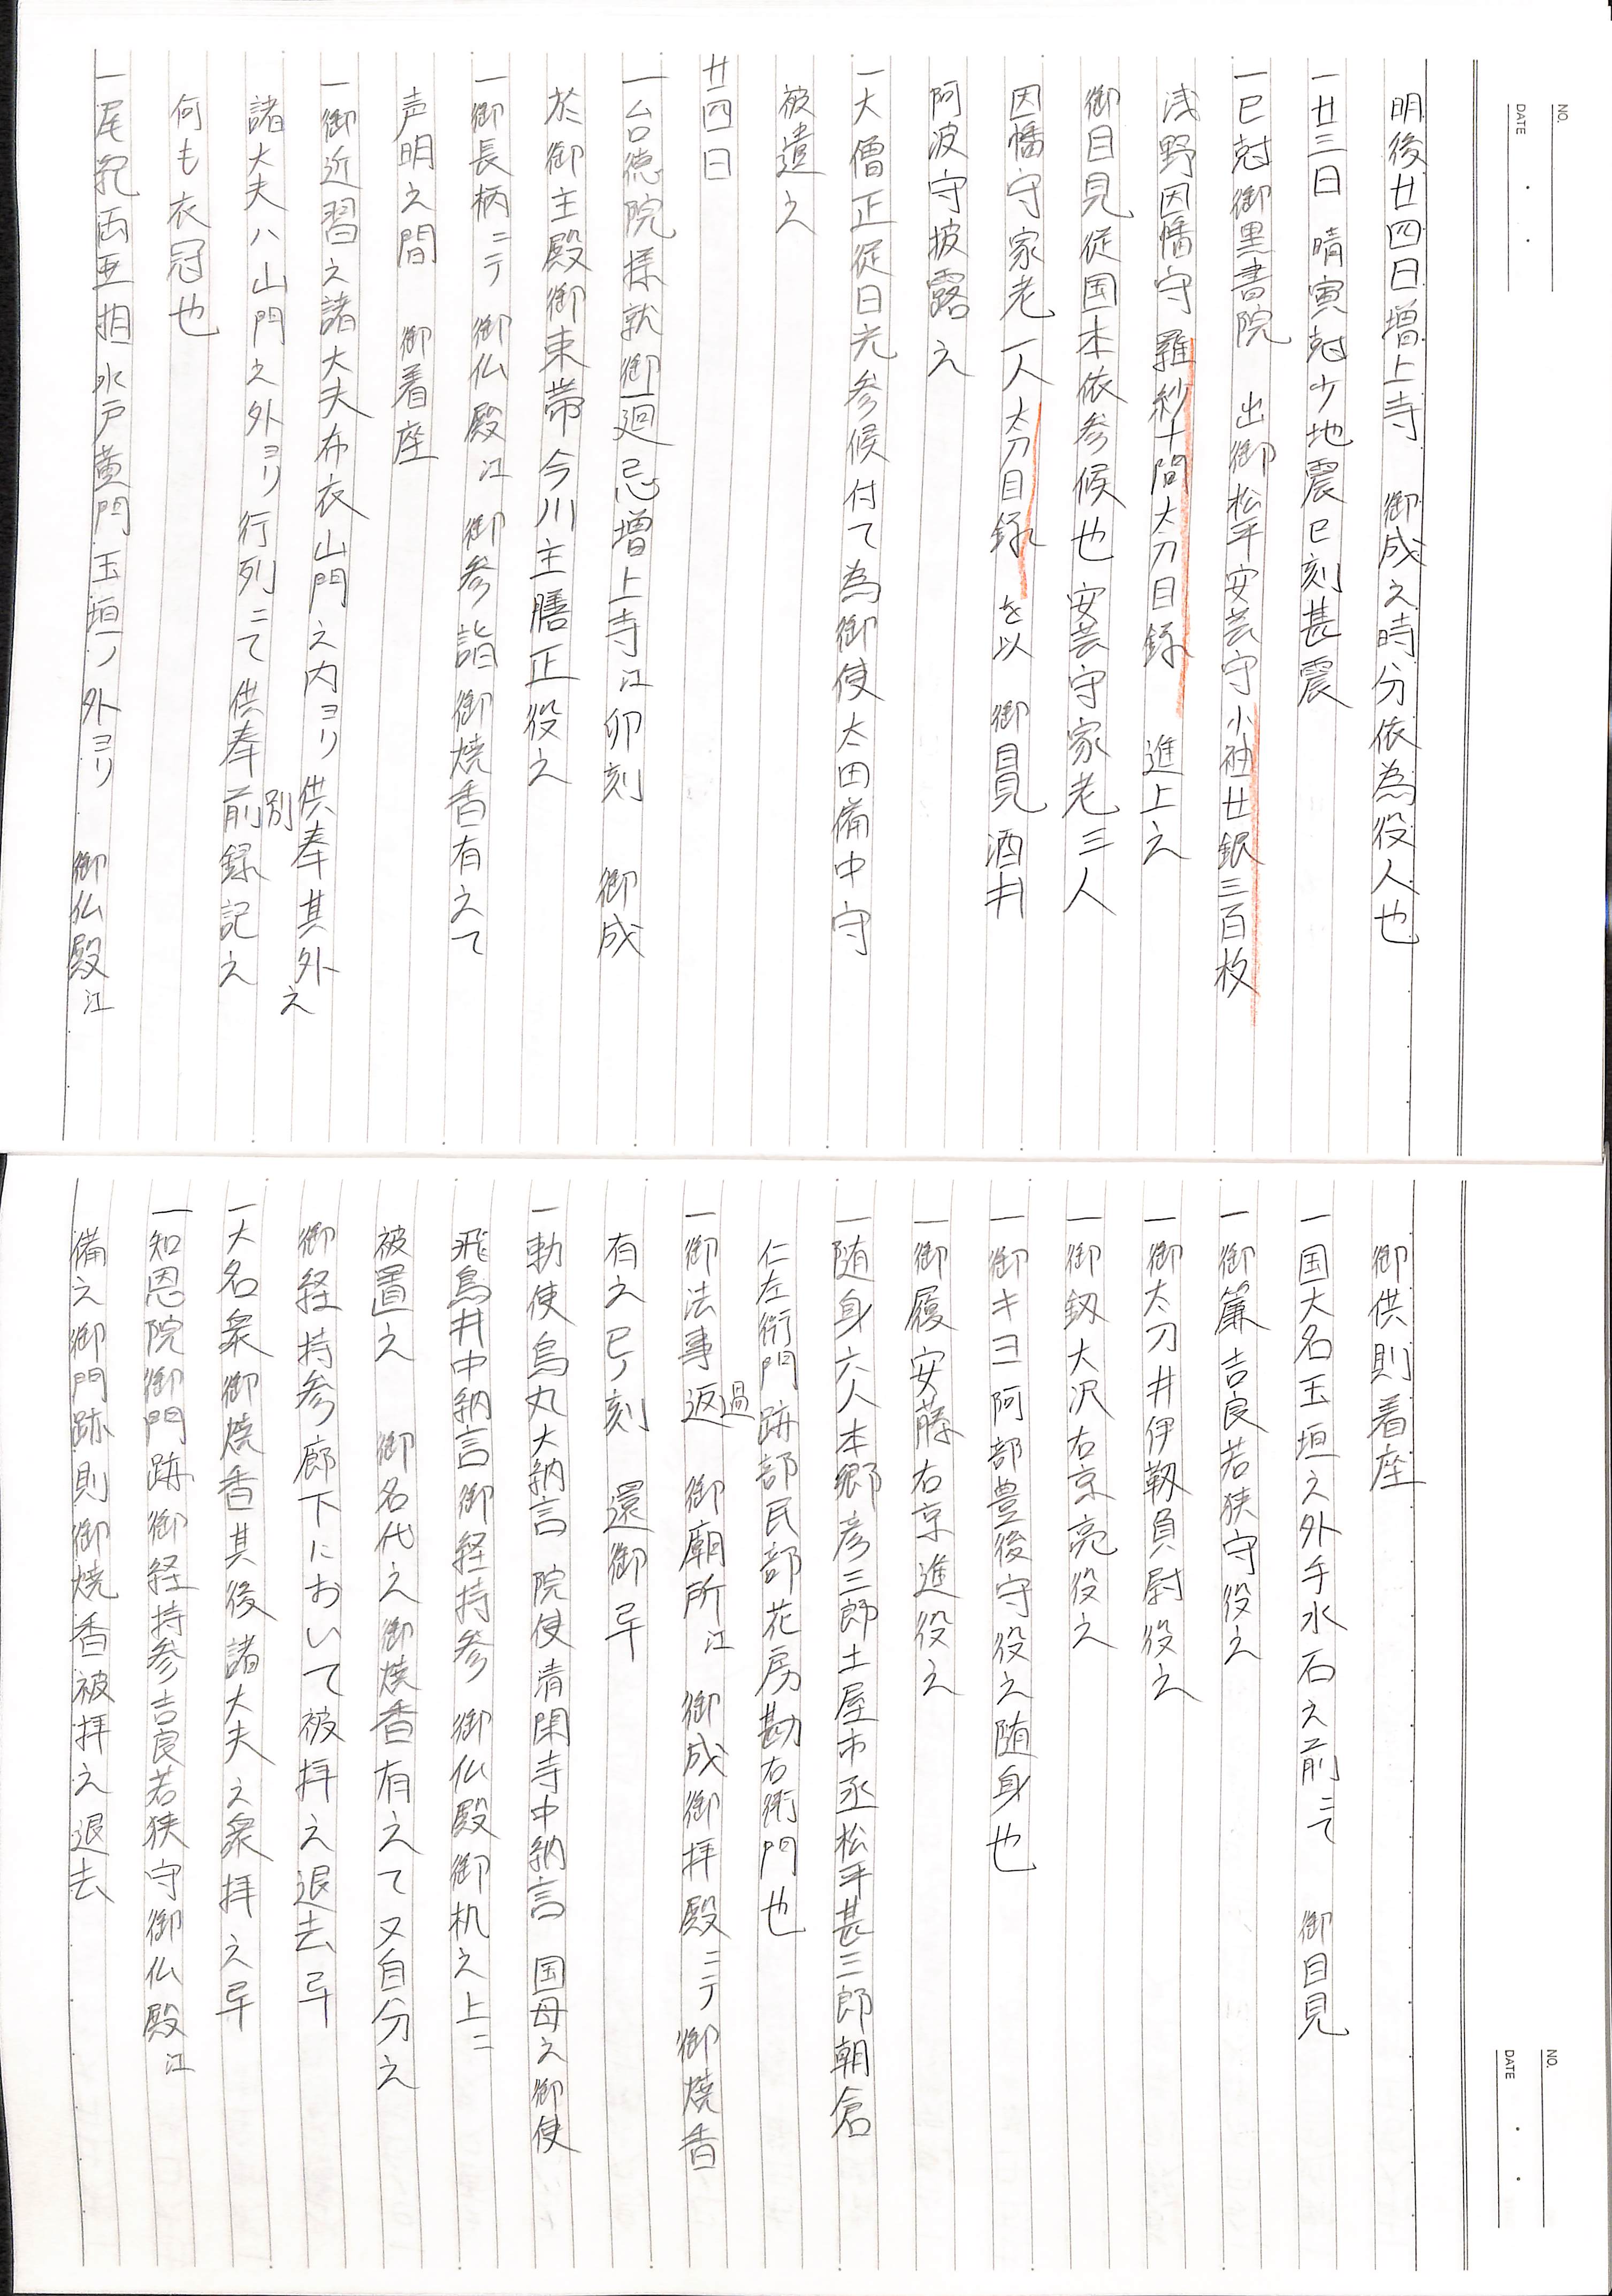 NO.
DATE
明後廿四日増上寺　御成之時分依為役人也
一廿三日　晴寅尅少地震巳刻甚震
一巳尅御黒書院　出御松平安芸守小袖廿銀三百枚
浅野因幡守羅紗十間太刀目録　進上之
御目見従国本依参候也安芸守家老三人
因幡守家老一人太刀目録を以　御目見酒井
阿波守披露之
一大僧正従日光参候付て為御使太田備中守
被遣之
廿四日
一台徳院様就御廻忌増上寺江卯刻　御成
於御主殿御束帯今川主膳正役之
一御長柄ニテ　御仏殿江　御参詣御焼香有之て
声明之間　御着座
一御近習之諸大夫布衣山門之内ヨリ供奉其外之
諸大夫ハ山門之外ヨリ行列ニて供奉前録記之
別
何も衣冠也
一尾紀両亜相水戸黄門玉垣ノ外ヨリ　御仏殿江
NO.
DATE
御供則着座
一国大名玉垣之外手水石之前ニて　御目見
一御簾吉良若狭守役之
一御太刀井伊靱負尉役之
一御釼大沢右京亮役之
一御キヨ阿部豊後守役之随身也
一御履安藤右京進役之
一随身六人本郷彦三郎土屋市丞松平甚三郎朝倉
仁左衛門跡部民部花房勘右衛門也
一御法事返　御廟所江　御成御拝殿ニテ御焼香
過
有之巳ノ刻　還御畢
一勅使烏丸大納言　院使清閑寺中納言　国母之御使
飛鳥井中納言御経持参　御仏殿御机之上ニ
被置之　御名代之御焼香有之て又自分之
御経持参廊下において被拝之退去畢
一大名衆御焼香其後諸大夫之衆拝之畢
一知恩院御門跡御経持参吉良若狭守御仏殿江
備之御門跡則御焼香被拝之退去